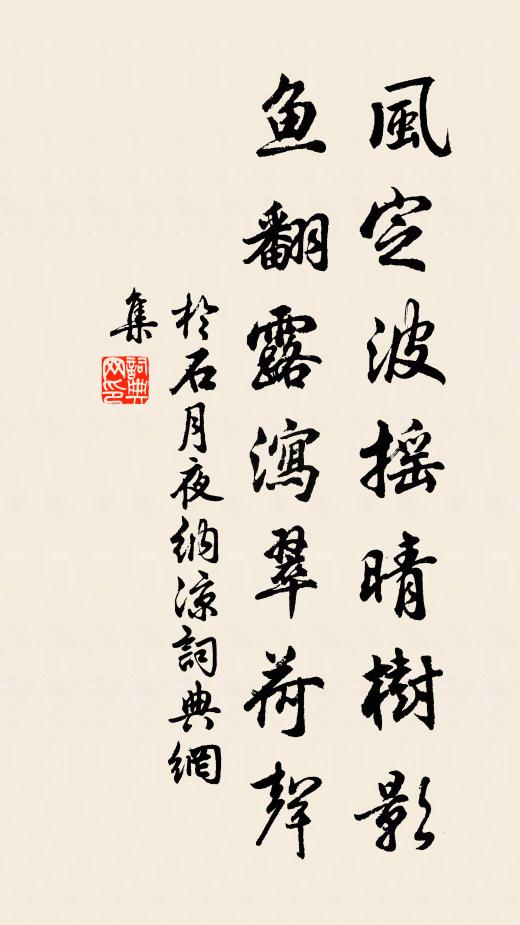 風定波摇晴樹影
鱼翻露瀉翠荷聲
於石月夜納涼詞典網
集
詞典
网印